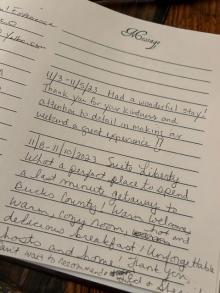 Message
11/3-11/5/23 Had a wonderful stay!
Thank you for your kindness and
attention to detail in making our
weekend a great experience!!
11/8-11/10/2023 Suite Liberty
What a perfect place to spend
a last minute getaway to
Bucks County! Warm welcome,
warm, cozy room, hot and
delicious breakfast! Unforgettable
hosts and home! Thank you
want to recommend